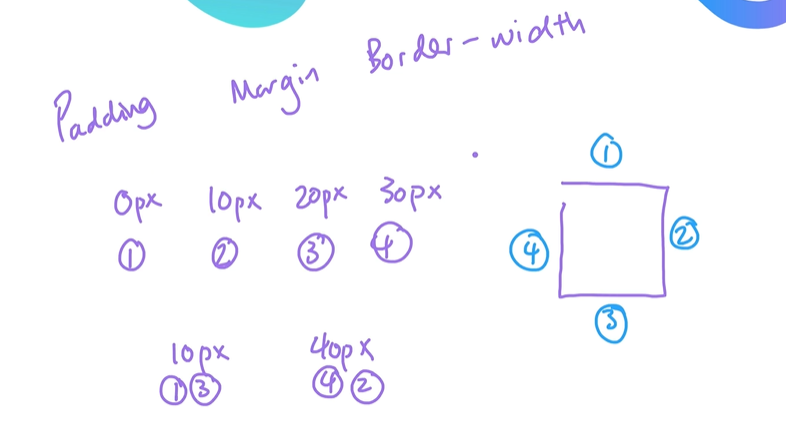 Padding Margin Border-width
①
0px 10px 20px 30px
① ② ③ ④
④ ②
③
10px 40px
① ③ ④ ②